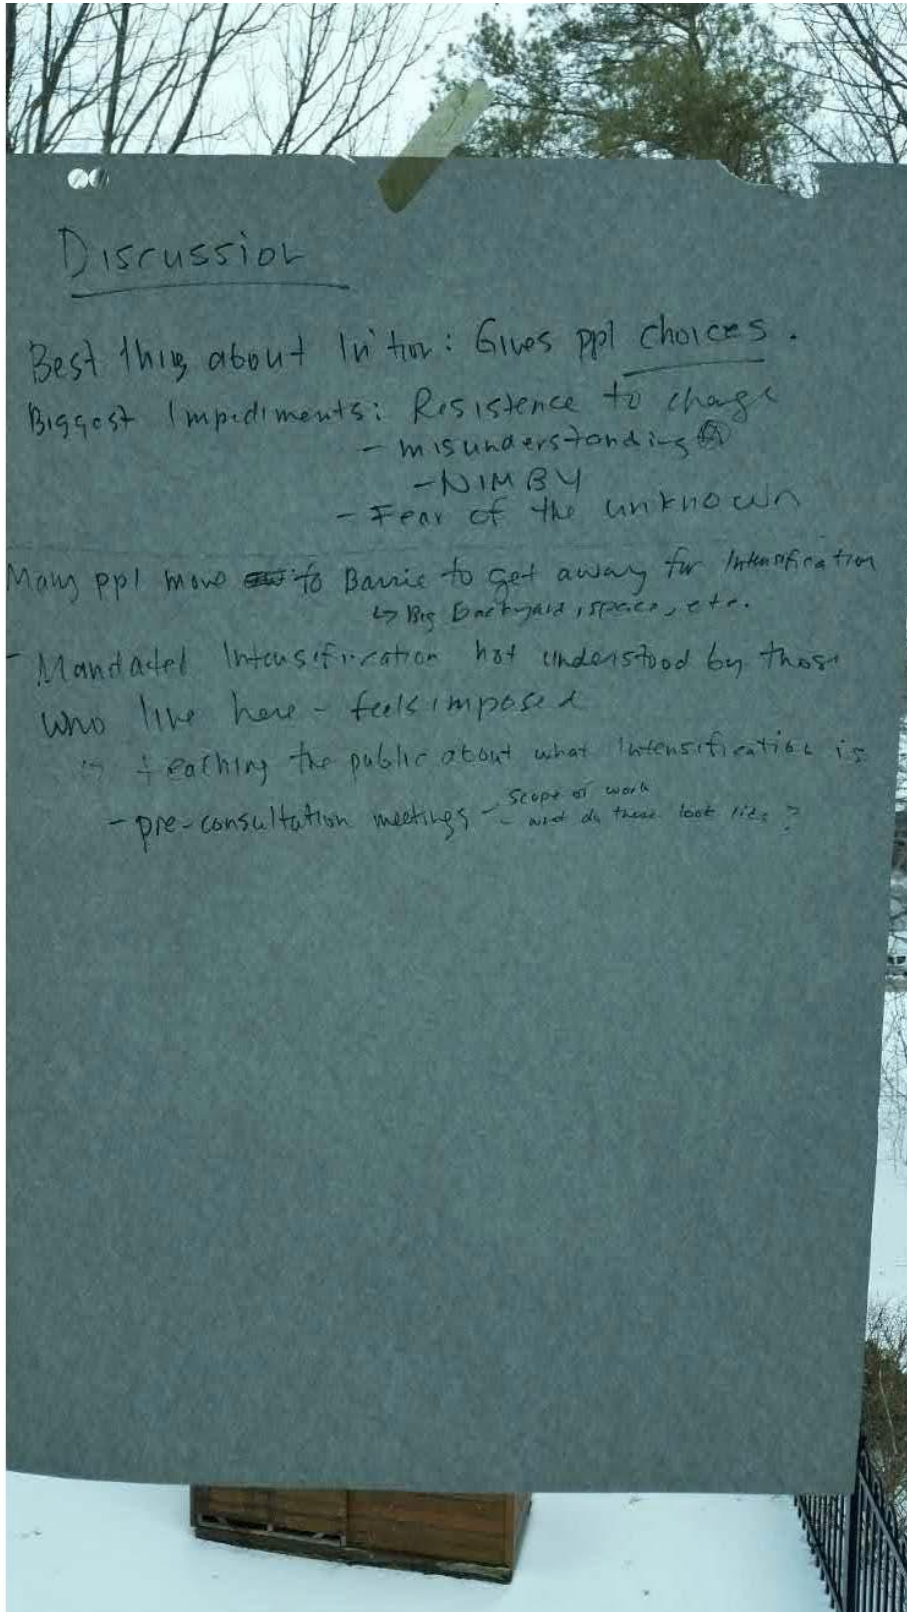 Discussion
Best thing about In'tion: Gives ppl choices.
Biggest Impediments: Resistence to change
- misunderstanding
- NIMBY
- Fear of the unknown
Many ppl move to Barrie to get away for Intensification
↳ Big backyard, space, etc.
- Mandated Intensification not understood by those
who live here - feels imposed
teaching the public about what Intensification is
- pre-consultation meetings - scope of work
- what do these look like?